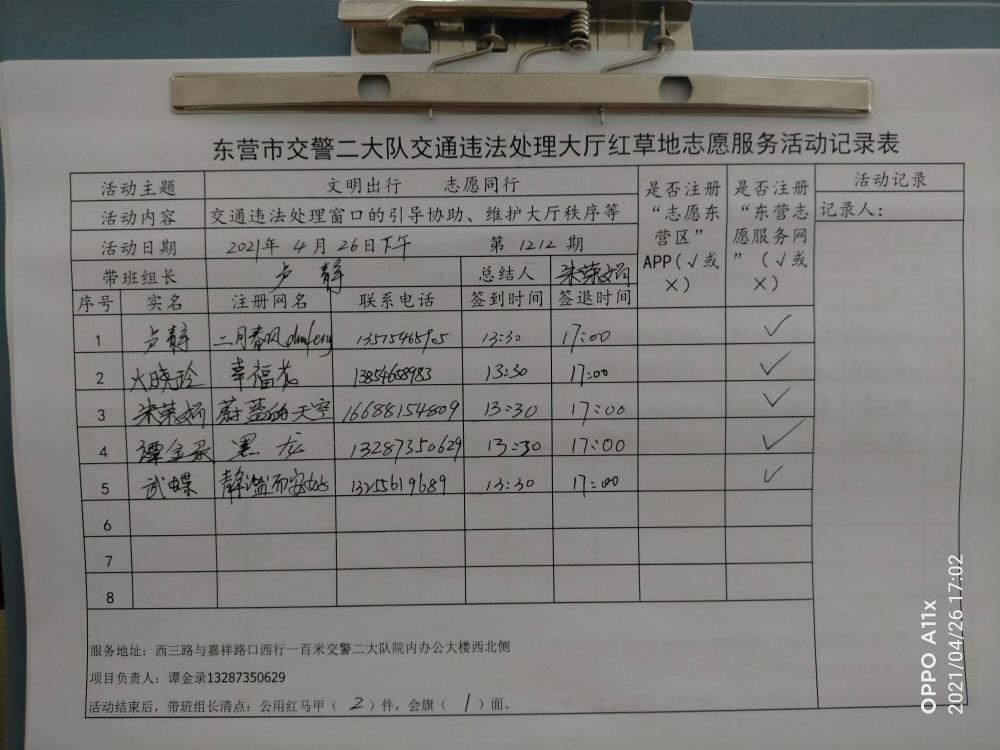 东营市交警二大队交通违法处理大厅红草地志愿服务活动记录表
活动主题 文明出行 志愿同行 是否注册“志愿东营区”APP(√或×) 是否注册“东营志愿服务网”(√或×) 活动记录
活动内容 交通违法处理窗口的引导协助、维护大厅秩序等 记录人:
活动日期 2021年 4月 26日下午 第 1212 期
带班组长 卢静 总结人 朱荣娟
序号 实名 注册网名 联系电话 签到时间 签退时间
1 卢静 二月春风 13:30 17:00 ✓
2 晓玲 幸福花 13854658983 13:30 17:00 ✓
3 朱荣娟 蔚蓝的天空 16688154809 13:30 17:00 ✓
4 谭金录 黑龙 13287350629 13:30 17:00 ✓
5 武蝶 13255619689 13:30 17:00 ✓
6
7
8
服务地址：西三路与嘉祥路口西行一百米交警二大队院内办公大楼西北侧
项目负责人：谭金录13287350629
活动结束后，带班组长清点：公用红马甲（ 2 ）件，会旗（ 1 ）面。
OPPO A11x
2021/04/26 17:02